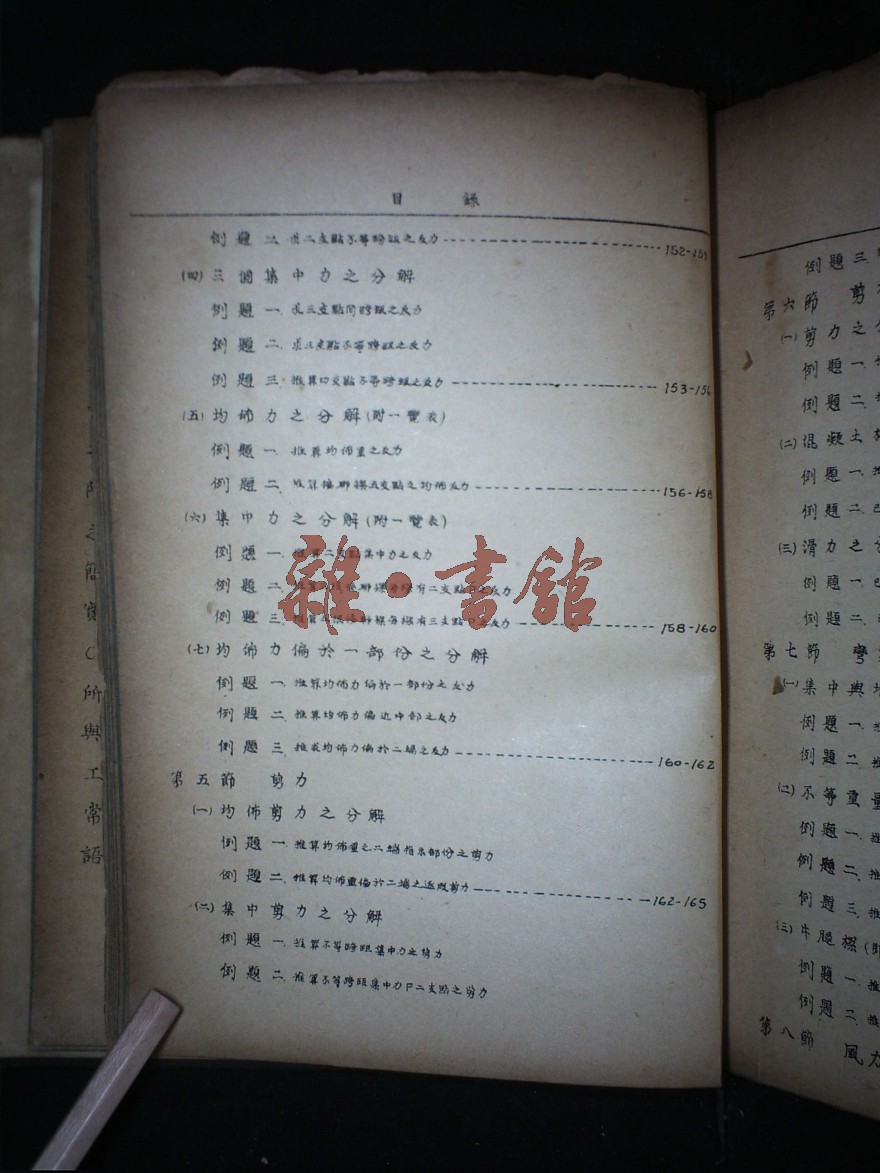 目 錄
例題二. 求二支點不等跨距之反力 152-153
(四) 三個集中力之分解
例題一. 求三支點同跨距之反力
例題二. 求三支點不等跨距之反力
例題三. 推算四支點不等跨距之反力 153-156
(五) 均佈力之分解(附一覽表)
例題一. 推算均佈重之反力
例題二. 五支點之均佈反力 156-158
(六) 集中力之分解(附一覽表)
例題一. 推算二支點集中力之反力
例題二. 有二支點P之反力
例題三. 有三支點P之反力 158-160
雜·書館
(七) 均佈力偏於一部份之分解
例題一. 推算均佈力偏於一部份之反力
例題二. 推算均佈力偏近中部之反力
例題三. 推求均佈力偏於二端之反力 160-162
第五節 剪力
(一) 均佈剪力之分解
例題一. 推算均佈重之二端指示部份之剪力
例題二. 推算均佈重偏於二端之 剪力 162-165
(二) 集中剪力之分解
例題一. 推算不等跨距集中力之剪力
例題二. 推算不等跨距集中力P二支點之剪力
之簡實C所與工常語
例題三.
第六節 剪
(一) 剪力之
例題一.
例題二.
(二) 混凝土
例題一.
例題二.
(三) 滑力之
例題一.
例題二.
第七節 彎
(一) 集中與
例題一.
例題二.
(二) 不等重量
例題一.
例題二.
例題三.
(三) 牛腿樑
例題一.
例題二.
第八節 風力